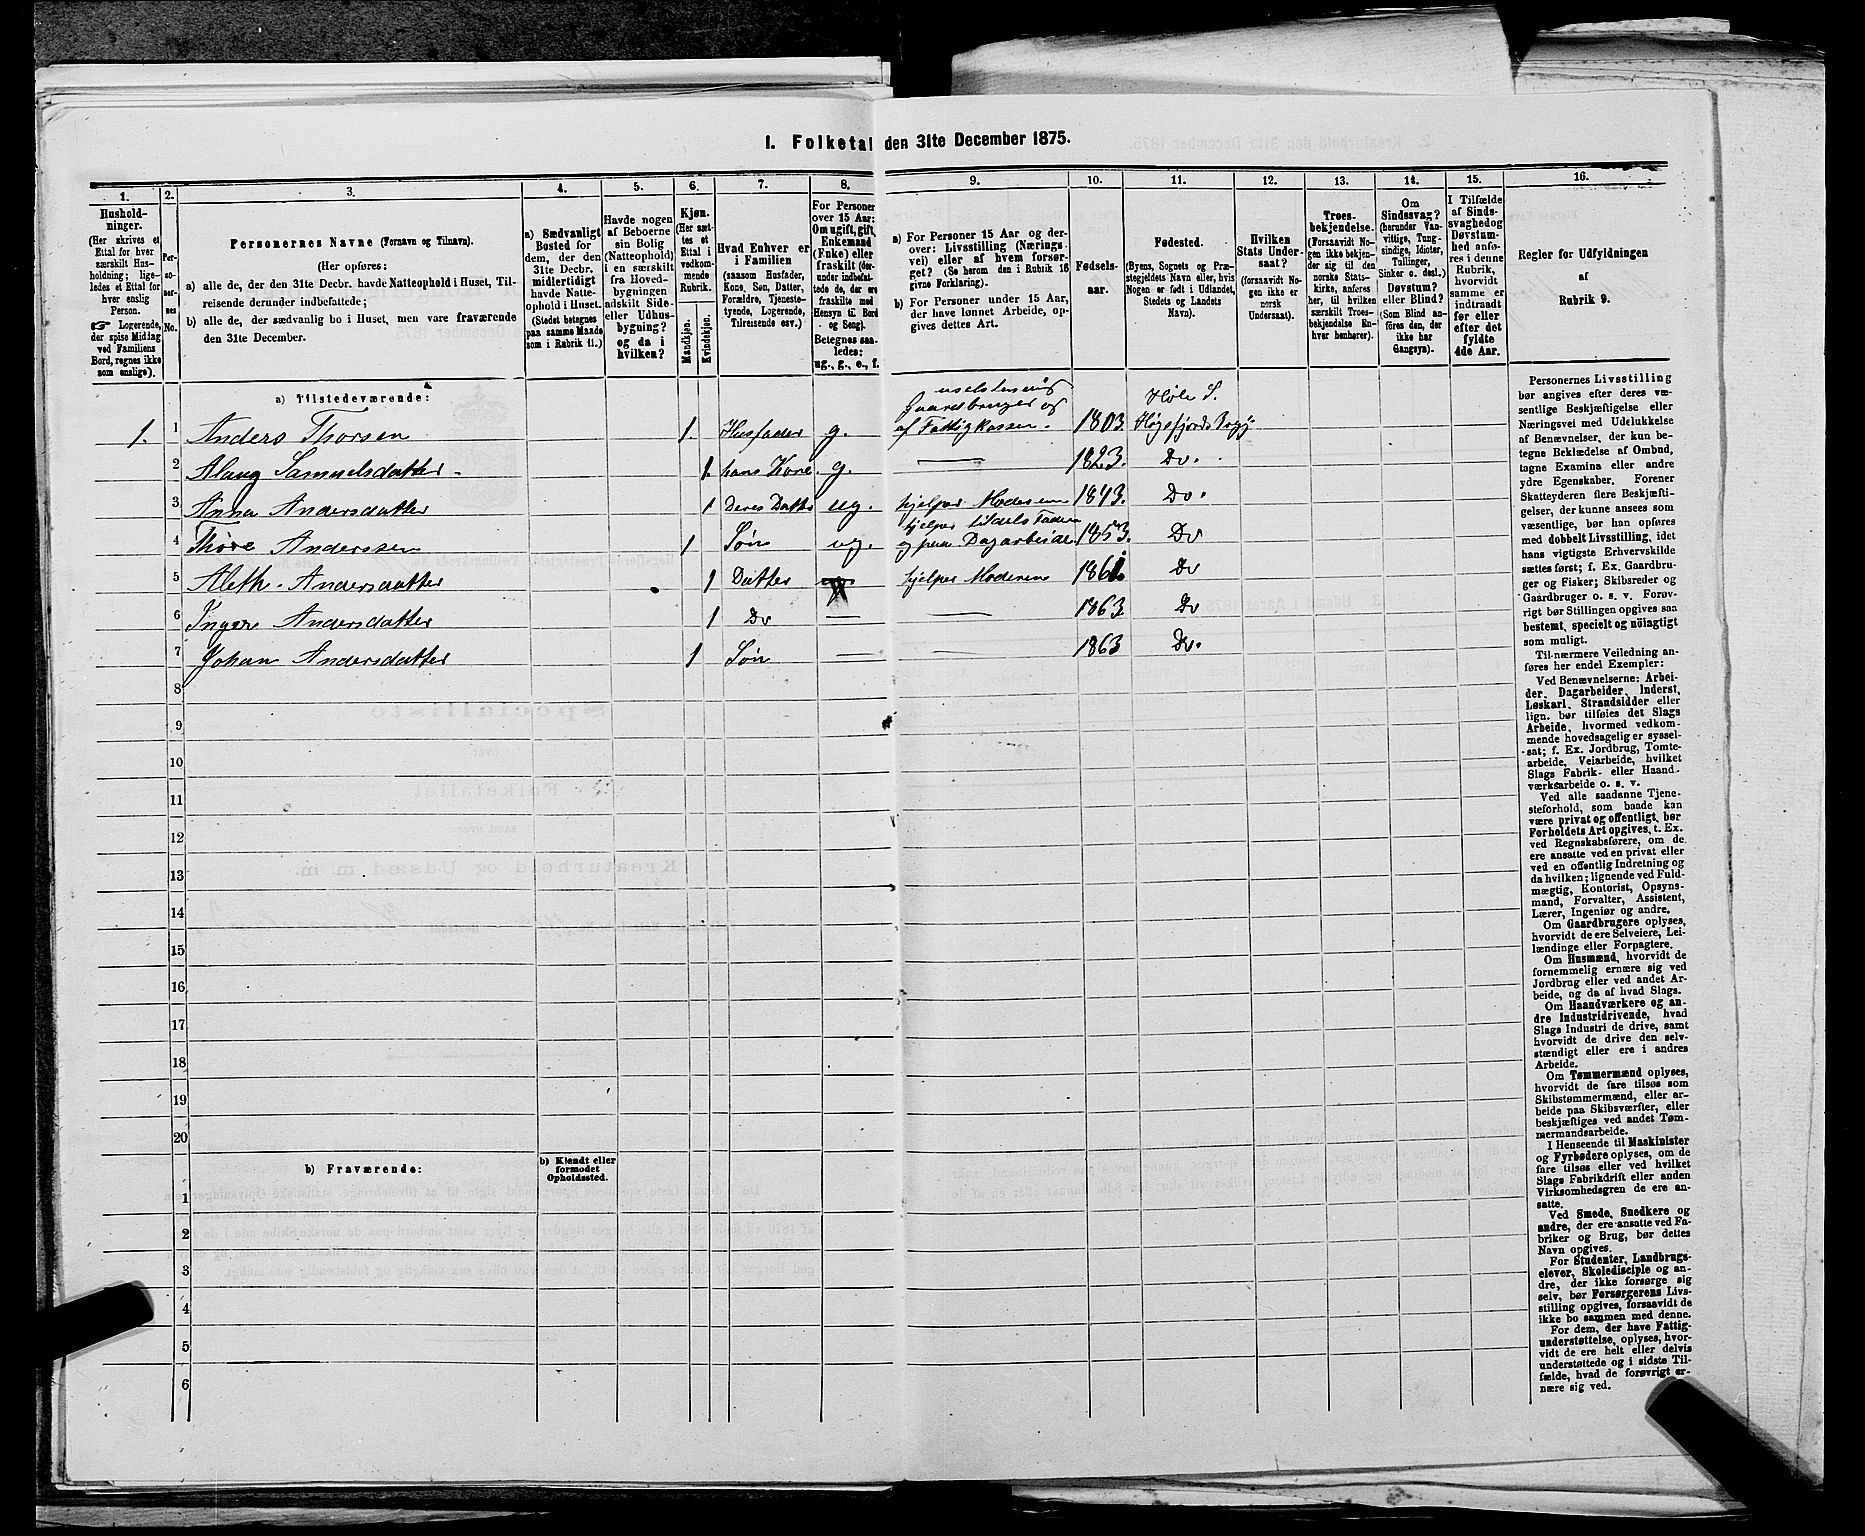 1. Folketal den 31te December 1875.
1.
2.
3.
4.
5.
6.
7.
8.
9.
10.
11.
12.
13.
14.
15.
16.
Hushold-
ninger.
(Her skrives et
Ettal for hver
særskilt Hus-
holdning; lige-
ledes et Ettal for
hver enslig
Person.
☞ Logerende,
der spise Middag
ved Familiens
Bord, regnes ikke
som enslige).
Per-
so-
ner-
nes
No.
Personernes Navne (Fornavn og Tilnavn).
(Her opføres:
a) alle de, der den 31te Decbr. havde Natteophold i Huset, Til-
reisende derunder indbefattede;
b) alle de, der sædvanlig bo i Huset, men vare fraværende
den 31te December.
a) Sædvanligt
Bosted for
dem, der den
31te Decbr.
midlertidigt
havde Natte-
ophold i Huset.
(Stedet betegnes
paa samme Maade
som i Rubrik 11.)
Havde nogen
af Beboerne
sin Bolig
(Natteophold)
i en særskilt
fra Hoved-
bygningen
adskilt Side-
eller Udhus-
bygning?
og da i
hvilken?
Kjøn.
(Her sæt-
tes et
Ettal i
vedkom-
mende
Rubrik.
Mandkjøn.
Kvindekjøn.
Hvad Enhver er
i Familien
(saasom Husfader,
Kone, Søn, Datter,
Forældre, Tjeneste-
tyende, Logerende,
Tilreisende osv.)
For Personer
over 15 Aar:
Om ugift, gift,
Enkemand
(Enke) eller
fraskilt (der-
under indbefat-
tede de, der ere
fraskilte med
Hensyn til Bord
og Seng).
Betegnes saa-
ledes:
ug., g., e., f.
a) For Personer 15 Aar og der-
over: Livsstilling (Nærings-
vei) eller af hvem forsør-
get? (Se herom den i Rubrik 16
givne Forklaring).
b) For Personer under 15 Aar,
der have lønnet Arbeide, op-
gives dettes Art.
Fødsels-
aar.
Fødested.
(Byens, Sognets og Præ-
stegjeldets Navn eller, hvis
Nogen er født i Udlandet,
Stedets og Landets
Navn).
Hvilken
Stats Under-
saat?
(forsaavidt No-
gen ikke er
norsk
Undersaat).
Troes-
bekjendelse.
(Forsaavidt No-
gen ikke bekjen-
der sig til den
norske Stats-
kirke, anføres
her, til hvilken
særskilt Troes-
bekjendelse En-
hver henhører).
Om
Sindssvag?
(herunder Van-
vittige, Tung-
sindige, Idioter,
Tullinger,
Sinker o. desl.)
Døvstum?
eller Blind?
(Som Blind an-
føres den, der
ikke har
Gangsyn).
I Tilfælde
af Sinds-
svaghed og
Døvstum-
hed anfø-
res i denne
Rubrik,
hvorvidt
samme er
indtraadt
før eller
efter det
fyldte
4de Aar.
Regler for Udfyldningen
af
Rubrik 9.
a) Tilstedeværende:
1. 1 Anders Thorsen 1. Husfader g. Gaardbruger og af Fattigkassen. 1803. Høle S. Høgsfjord
2 Alaug Samuelsdatter 1. hans Kone. g. — 1823. Do.
3 Anna Andersdatter 1 Deres Datter ug. hjelper Moderen 1843. Do.
4 Thore Anderssen 1 Søn ug. hjelper tildels Faderen og paa Dagarbeide 1853. Do
5 Aleth. Andersdatter 1 Datter hjelper Moderen 1861. Do
6 Inger Andersdatter 1 Do — — 1863. Do
7 Johan Andersdatter 1 Søn — 1863 Do.
8
9
10
11
12
13
14
15
16
17
18
19
20
b) Fraværende:
b) Kjendt eller
formodet
Opholdssted.
1
2
3
4
5
6
Personernes Livsstilling
bør angives efter deres væ-
sentlige Beskjæftigelse eller
Næringsvei med Udelukkelse
af Benævnelser, der kun be-
tegne Beklædelse af Ombud,
tagne Examina eller andre
ydre Egenskaber. Forener
Skatteyderen flere Beskjæfti-
gelser, der kunne ansees som
væsentlige, bør han opføres
med dobbelt Livsstilling, idet
hans vigtigste Erhvervskilde
sættes først; f. Ex. Gaardbru-
ger og Fisker; Skibsreder og
Gaardbruger o. s. v. Forøv-
rigt bør Stillingen opgives saa
bestemt, specielt og nöiagtigt
som muligt.
Til nærmere Veiledning an-
føres her endel Exempler:
Ved Benævnelserne: Arbei-
der, Dagarbeider, Inderst,
Løskarl, Strandsidder eller
lign. bør tilføies det Slags
Arbeide, hvormed vedkom-
mende hovedsagelig er syssel-
sat; f. Ex. Jordbrug, Tomte-
arbeide, Veiarbeide, hvilket
Slags Fabrik- eller Haand-
værksarbeide o. s. v.
Ved alle saadanne Tjene-
steforhold, som baade kan
være privat og offentlig, bør
Forholdets Art opgives, t. Ex.
ved Regnskabsførere, om de
ere ansatte ved en privat eller
ved en offentlig Indretning og
da hvilken; lignende ved Fuld-
mægtig, Kontorist, Opsyns-
mand, Forvalter, Assistent,
Lærer, Ingeniør og andre.
Om Gaardbrugere oplyses,
hvorvidt de ere Selveiere, Lei-
lændinge eller Forpagtere.
Om Husmænd, hvorvidt de
fornemmelig ernære sig ved
Jordbrug eller ved andet Ar-
beide, og da af hvad Slags.
Om Haandværkere og an-
dre Industridrivende, hvad
Slags Industri de drive, samt
hvorvidt de drive den selv-
stændigt eller ere i andres
Arbeide.
Om Tømmermænd oplyses,
hvorvidt de fare tilsøs som
Skibstømmermænd, eller ar-
beide paa Skibsværfter, eller
beskjæftiges ved andet Tøm-
mermandsarbeide.
I Henseende til Maskinister
og Fyrbødere oplyses, om de
fare tilsøs eller ved hvilket
Slags Fabrikdrift eller anden
Virksomhedsgren de ere an-
satte.
Ved Smede, Snedkere og
andre, der ere ansatte ved Fa-
briker og Brug, bør dettes
Navn opgives.
For Studenter, Landbrugs-
elever, Skoledisciple og an-
dre, der ikke forsørge sig
selv, bør Forsørgerens Livs-
stilling opgives, forsaavidt de
ikke bo sammen med denne.
For dem, der have Fattig-
understøttelse, oplyses, hvor-
vidt de ere helt eller delvis
understøttede og i sidste Til-
fælde, hvad de forøvrigt er-
nære sig ved.